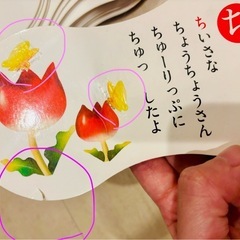 ち
ちいさな
ちょうちょうさん
ちゅーりっぷに
ちゅっ　したよ